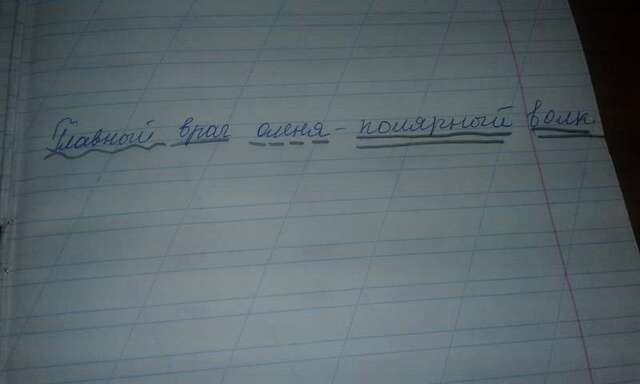 Главный враг оленя - полярный волк